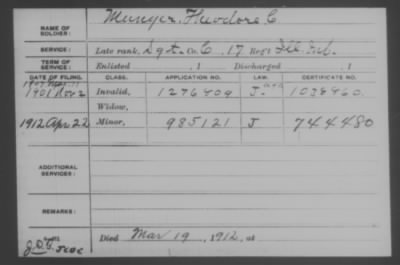 NAME OF SOLDIER: Munger, Theodore C
SERVICE: Late rank, Sgt. Co. C, 17 Reg't Ill. Inf.
TERM OF SERVICE: Enlisted , 1 Discharged , 1
DATE OF FILING. CLASS. APPLICATION NO. LAW. CERTIFICATE NO.
1901 Nov 2 Invalid, 1276409 J. 1038960.
Widow,
1912 Apr 22 Minor, 985121 J 744480
ADDITIONAL SERVICES:
REMARKS:
Died Mar 19, 1912, at